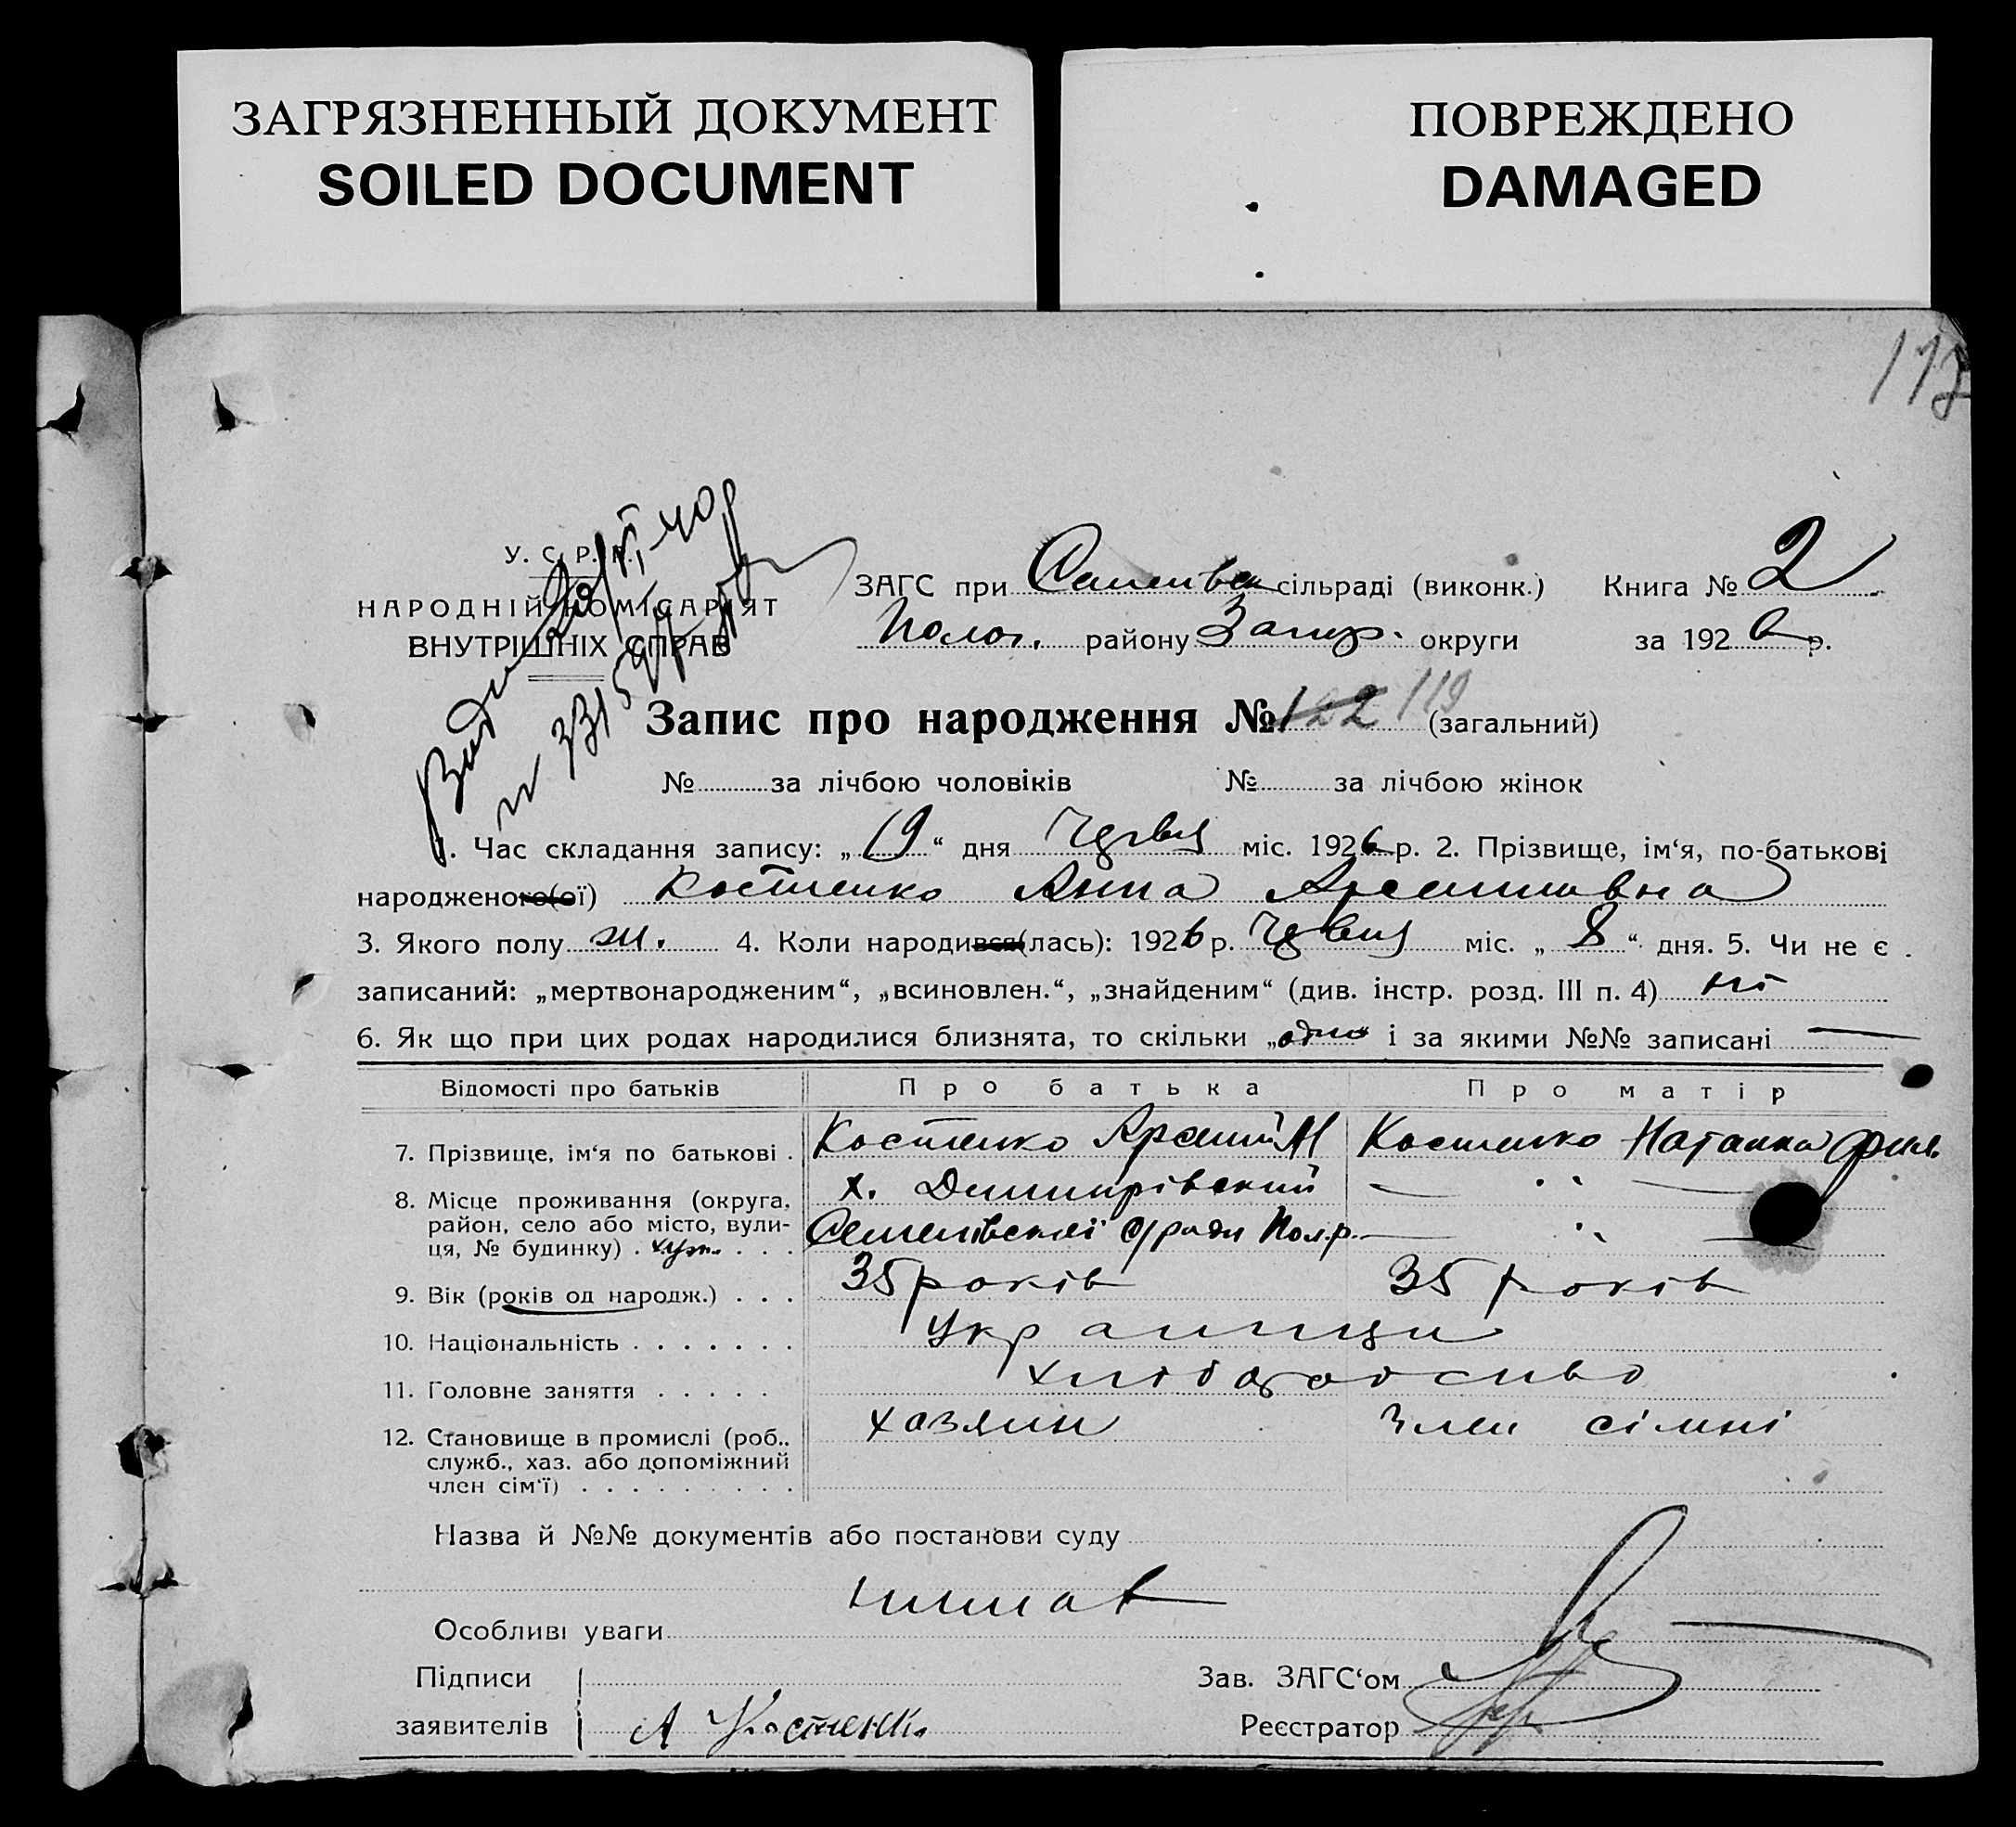 ЗАГРЯЗНЕННЫЙ ДОКУМЕНТ
SOILED DOCUMENT
ПОВРЕЖДЕНО
DAMAGED
У. С. Р. Р.
НАРОДНІЙ КОМІСАРІЯТ
ВНУТРІШНІХ СПРАВ
ЗАГС при Семенівск сільраді (виконк.) Книга № 2
Полог. району Запор. округи за 1926 р.
Запис про народження № 122 119 (загальний)
№ за лічбою чоловіків № за лічбою жінок
1. Час складання запису: „19“ дня Червня міс. 1926 р. 2. Прізвище, ім‘я, по-батькові
народженого(ої) Костенко Анна Арсентівна
3. Якого полу ж. 4. Коли народився(лась): 1926 р. Червня міс. „8“ дня. 5. Чи не є
записаний: „мертвонародженим“, „всиновлен.“, „знайденим“ (див. інстр. розд. III п. 4) ні
6. Як що при цих родах народилися близнята, то скільки „одно“ і за якими №№ записані —
Відомості про батьків Про батька Про матір
7. Прізвище, ім‘я по батькові . Костенко Арсентій М Костенко Наталка Фил.
8. Місце проживання (округа, х. Димитрівский — " —
район, село або місто, вули- Семенівскої с/ради Пол.р. — " —
ця, № будинку) . хут. . . .
9. Вік (років од народж.) . . . 35 років 35 років
10. Національність . . . . . . . Українци
11. Головне заняття . . . . . хліборобство
12. Становище в промислі (роб., хазяин Член сімні
служб., хаз. або допоміжний
член сім‘ї) . . . . . . . . .
Назва й №№ документів або постанови суду
немає
Особливі уваги
Підписи Зав. ЗАГС‘ом
заявителів А Костенко Реєстратор